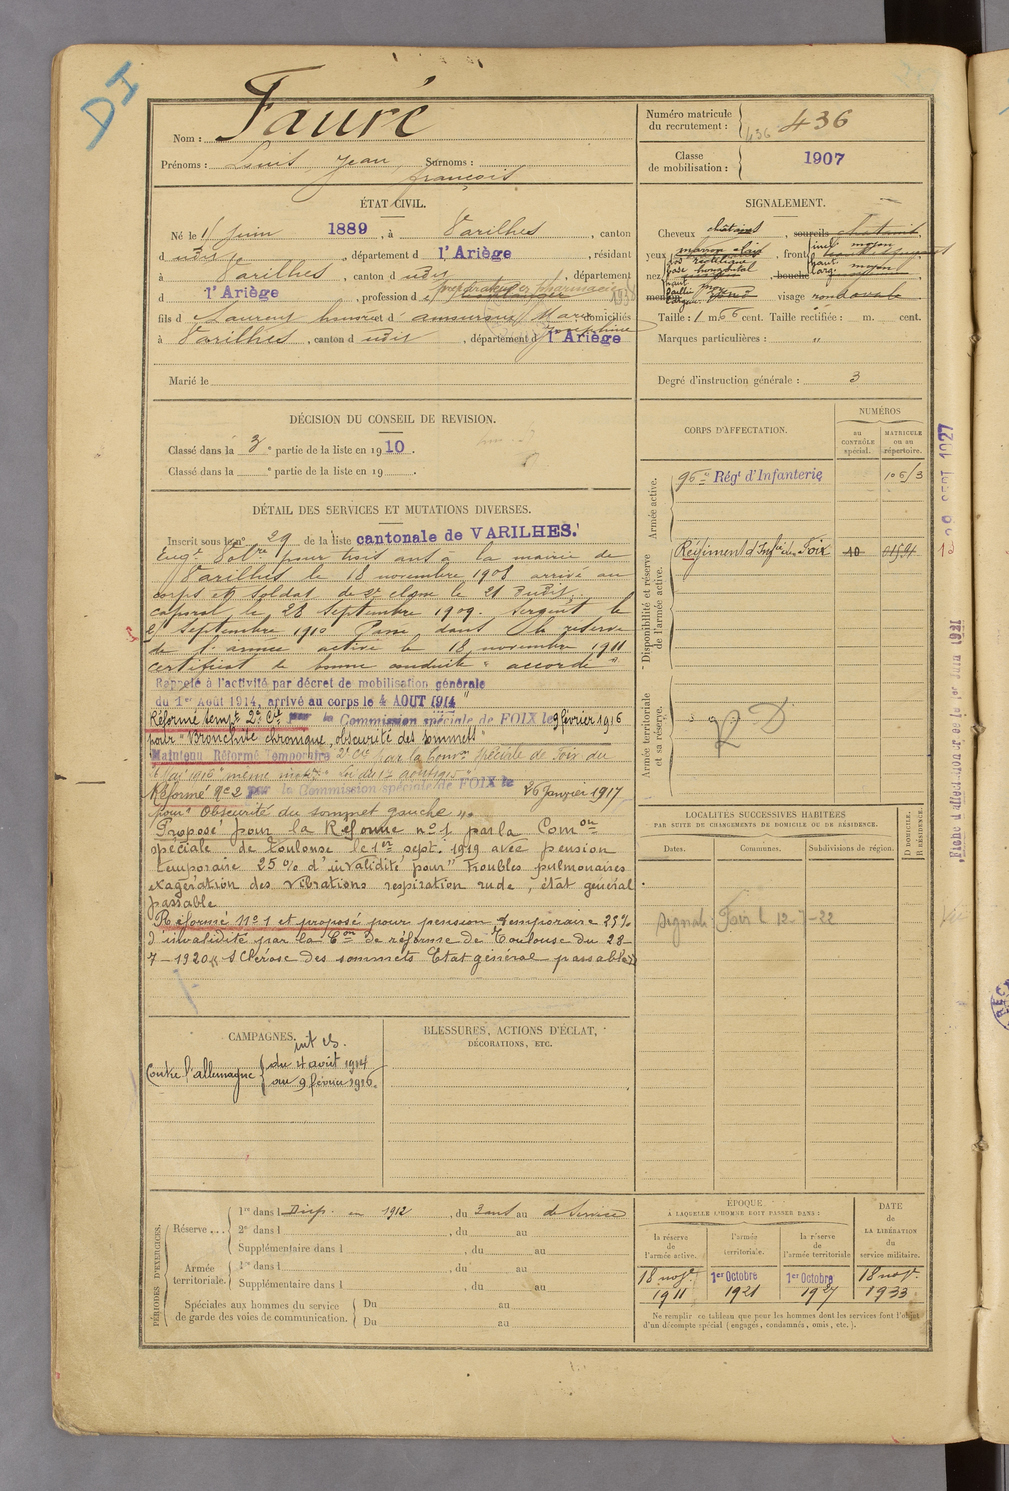 DI
Nom : Fauré
Prénoms : Louis Jean Surnoms :
François
Numéro matricule du recrutement : 436 436
Classe de mobilisation : 1907
ÉTAT CIVIL.
Né le Juin 1889, à Varilhes, canton
d udit, département d l'Ariège, résidant
à Varilhes, canton d udit, département
d l'Ariège, profession d préparateur en pharmacie
fils d et d' Marie domiciliés
Joséphine
à Varilhes, canton d udit, département d l'Ariège
Marié le
SIGNALEMENT.
Cheveux châtains, sourcils châtains
yeux marron clair, front moyen
nez rectiligne base horizontal, bouche
menton visage rond ovale
Taille : 1 m. 66 cent. Taille rectifiée : m. cent.
Marques particulières : "
Degré d'instruction générale : 3
DÉCISION DU CONSEIL DE REVISION.
Classé dans la 3e partie de la liste en 1910.
Classé dans la e partie de la liste en 19 .
DÉTAIL DES SERVICES ET MUTATIONS DIVERSES.
Inscrit sous le n° 29 de la liste cantonale de VARILHES.
Engt Volre pour trois ans à la mairie de
Varilhes le 18 novembre 1908 arrivé au
corps et soldat de 2e classe le 21 dudit.
caporal le 28 septembre 1909. Sergent le
septembre 1910 Passé dans la réserve
de l'armée active le 18 novembre 1911
certificat de bonne conduite "accordé"
Rappelé à l'activité par décret de mobilisation générale
du 1er Août 1914, arrivé au corps le 4 AOUT 1914
Réformé tempre 2e Cie par la Commission spéciale de FOIX le 9 février 1916
pour "Bronchite chronique, obscurité des sommets"
Maintenu Réformé Temporaire 2e Cie par la Comon spéciale de Foix du
mai 1916 "même motif" loi du 17 août 1915
Réformé N° 2 par la Commission spéciale de FOIX le 26 Janvier 1917
pour "Obscurité du sommet gauche"
Proposé pour la Réforme n° 1 par la Comon
spéciale de Toulouse le 1er sept. 1919 avec pension
temporaire 25 % d'invalidité pour "Troubles pulmonaires
exagération des vibrations respiration rude, état général
passable
Réformé N° 1 et proposé pour pension temporaire 25 %
d'invalidité par la Con de réforme de Toulouse du 28-
7-1920 "Sclérose des sommets Etat général passable"
CORPS D'AFFECTATION.
NUMÉROS
au CONTRÔLE spécial.
MATRICULE ou au répertoire.
Armée active.
96e Régt d'Infanterie
Disponibilité et réserve de l'armée active.
Régiment d'Infrie de Foix 10 01591
Armée territoriale et sa réserve.
RD
LOCALITÉS SUCCESSIVES HABITÉES
PAR SUITE DE CHANGEMENTS DE DOMICILE OU DE RÉSIDENCE.
Dates. Communes. Subdivisions de région. D DOMICILE. R RÉSIDENCE.
Signalé Foix l 12-7-22
CAMPAGNES. int es.
Contre l'allemagne { du 4 août 1914
au 9 février 1916.
BLESSURES, ACTIONS D'ÉCLAT,
DÉCORATIONS, ETC.
PÉRIODES D'EXERCICES.
Réserve... 1re dans l Disp. en 1912, du 3 ans au de Service
2e dans l , du au
Supplémentaire dans l , du au
Armée territoriale. 1re dans l , du au
Supplémentaire dans l , du au
Spéciales aux hommes du service de garde des voies de communication. Du au
Du au
ÉPOQUE
À LAQUELLE L'HOMME DOIT PASSER DANS :
la réserve de l'armée active.
l'armée territoriale.
la réserve de l'armée territoriale
DATE de LA LIBÉRATION du service militaire.
18 nove 1911
1er Octobre 1921
1er Octobre 1927
18 nove 1933
Ne remplir ce tableau que pour les hommes dont les services font l'objet
d'un décompte spécial (engagés, condamnés, omis, etc.).